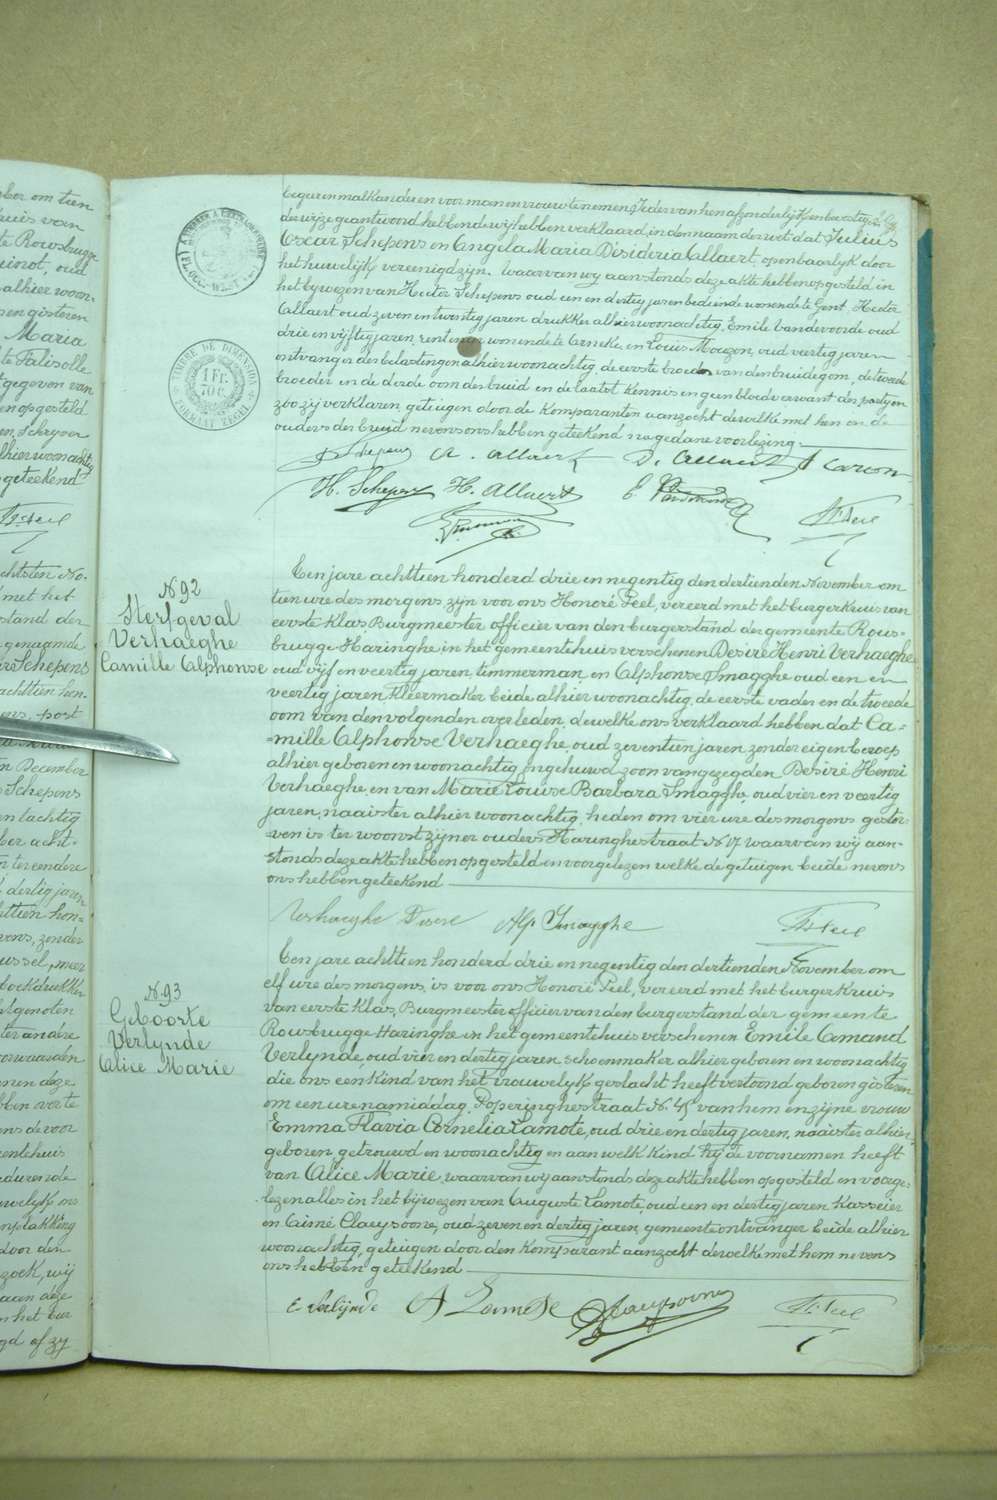 ber om tien
huis van
te Rousbrugge
oud
alhier woon-
gisteren
Maria
te Falisolle
gegeven van
en opgesteld
Schryver
alhier woonachtig
geteekend
Hre Peel
achtsten No-
met het
stand der
genaamde
Schepens
achttien hon-
post
December
Schepens
en tachtig
ber acht-
ter eendere
dertig jaren
achttien hon-
zonder
ussel, meer
boekdrukker
ter andre
voorwaarden
nen deze
bben over te
ons de voor
eentehuis
durende
welyk ons
inplakking
door den
zoek, wij
deze
het bur
gd of zy
begeeren malkanderen voor man en vrouw te nemen, ieder van hen afzonderlijk en bevestig-
der wijze geantwoord hebbende wij hebben verklaard, in den naam der wet dat Julius
Oscar Schepens en Angela Maria Desideria Allaert, openbaarlyk door
het huwelijk vereenigd zijn. Waarvan wij aanstonds deze akte hebben opgesteld in
het bywezen van Hector Schepens oud een en dertig jaren bediende wonende te Gent, Hector
Allaert oud zeven en twintig jaren drukker alhier woonachtig, Emile Vandevoorde oud
drie en vijftig jaren, rentenier wonende te Erneke, en Louis Mouzon, oud veertig jaren
ontvanger der belastingen alhier woonachtig, de eerste broeder van den bruidegom, de tweede
broeder en de derde oom der bruid en de laatst kennis en geen bloedverwant der partyen
zoo zij verklaren, getuigen door de Komparanten aanzocht dewelke met hen en de
ouders der bruid nevens ons hebben geteekend na gedane voorlezing.
TIMBRE DE DIMENSION
1 FR.
70 C.
FORMAAT ZEGEL
J Schepens A. Allaert D. Allaert Carion
H. Schepens H. Allaert E Vandevoorde
L Mouzon Hre Peel
N. 92
Sterfgeval
Verhaeghe
Camille Alphonse
Een jare achttien honderd drie en negentig den dertienden November om
tien ure des morgens zijn voor ons Honoré Peel, vereerd met het burgerkruis van
eerste klas, Burgmeester officier van den burgerstand der gemeente Rous-
brugge Haringhe in het gemeentehuis verschenen Desiré Henri Verhaeghe
oud vijf en veertig jaren, timmerman, en Alphonse Smagghe oud een en
veertig jaren Kleermaker beide alhier woonachtig, de eerste vader en de tweede
oom van den volgenden overleden, dewelke ons verklaard hebben dat Ca=
=mille Alphonse Verhaeghe, oud zeventien jaren zonder eigen beroep
alhier geboren en woonachtig ongehuwd zoon van gezegden Desiré Henri
Verhaeghe, en van Marie Louise Barbara Smagghe, oud vier en veertig
jaren, naaister alhier woonachtig, heden om vier ure des morgens gestor-
ven is ter woonst zijner ouders Haringhestraat No 17 waarvan wij aan-
stonds deze akte hebben opgesteld en voorgelezen welke de getuigen beide nevens
ons hebben geteekend
Verhaeghe Desire Alp Smagghe Hre Peel
N. 93
Geboorte
Verlynde
Alice Marie
Een jare achttien honderd drie en negentig den dertienden November om
elf ure des morgens, is voor ons Honoré Peel, vereerd met het burgerkruis
van eerste klas, Burgmeester officier van den burgerstand der gemeente
Rousbrugge Haringhe in het gemeentehuis verschenen Emile Amand
Verlynde, oud vier en dertig jaren schoenmaker alhier geboren en woonachtig
die ons een Kind van het vrouwelyk geslacht heeft vertoond geboren gisteren
om een ure namiddag, Poperinghestraat No. 45 van hem en zijne vrouw
Emma Flavia Cornelia Lamote, oud drie en dertig jaren, naaister alhier
geboren, getrouwd en woonachtig en aan welk Kind hij de voornamen heeft
van Alice Marie, waarvan wij aanstonds deze akte hebben opgesteld en voorge-
lezen alles in het bijwezen van Auguste Lamote, oud een en dertig jaren Kasseier
en Aimé Claeysoone, oud zeven en dertig jaren, gemeenteontvanger beide alhier
woonachtig, getuigen door den Komparant aanzocht dewelke met hem nevens
ons hebben geteekend
E Verlijnde A Lamote Claeysoone Hre Peel